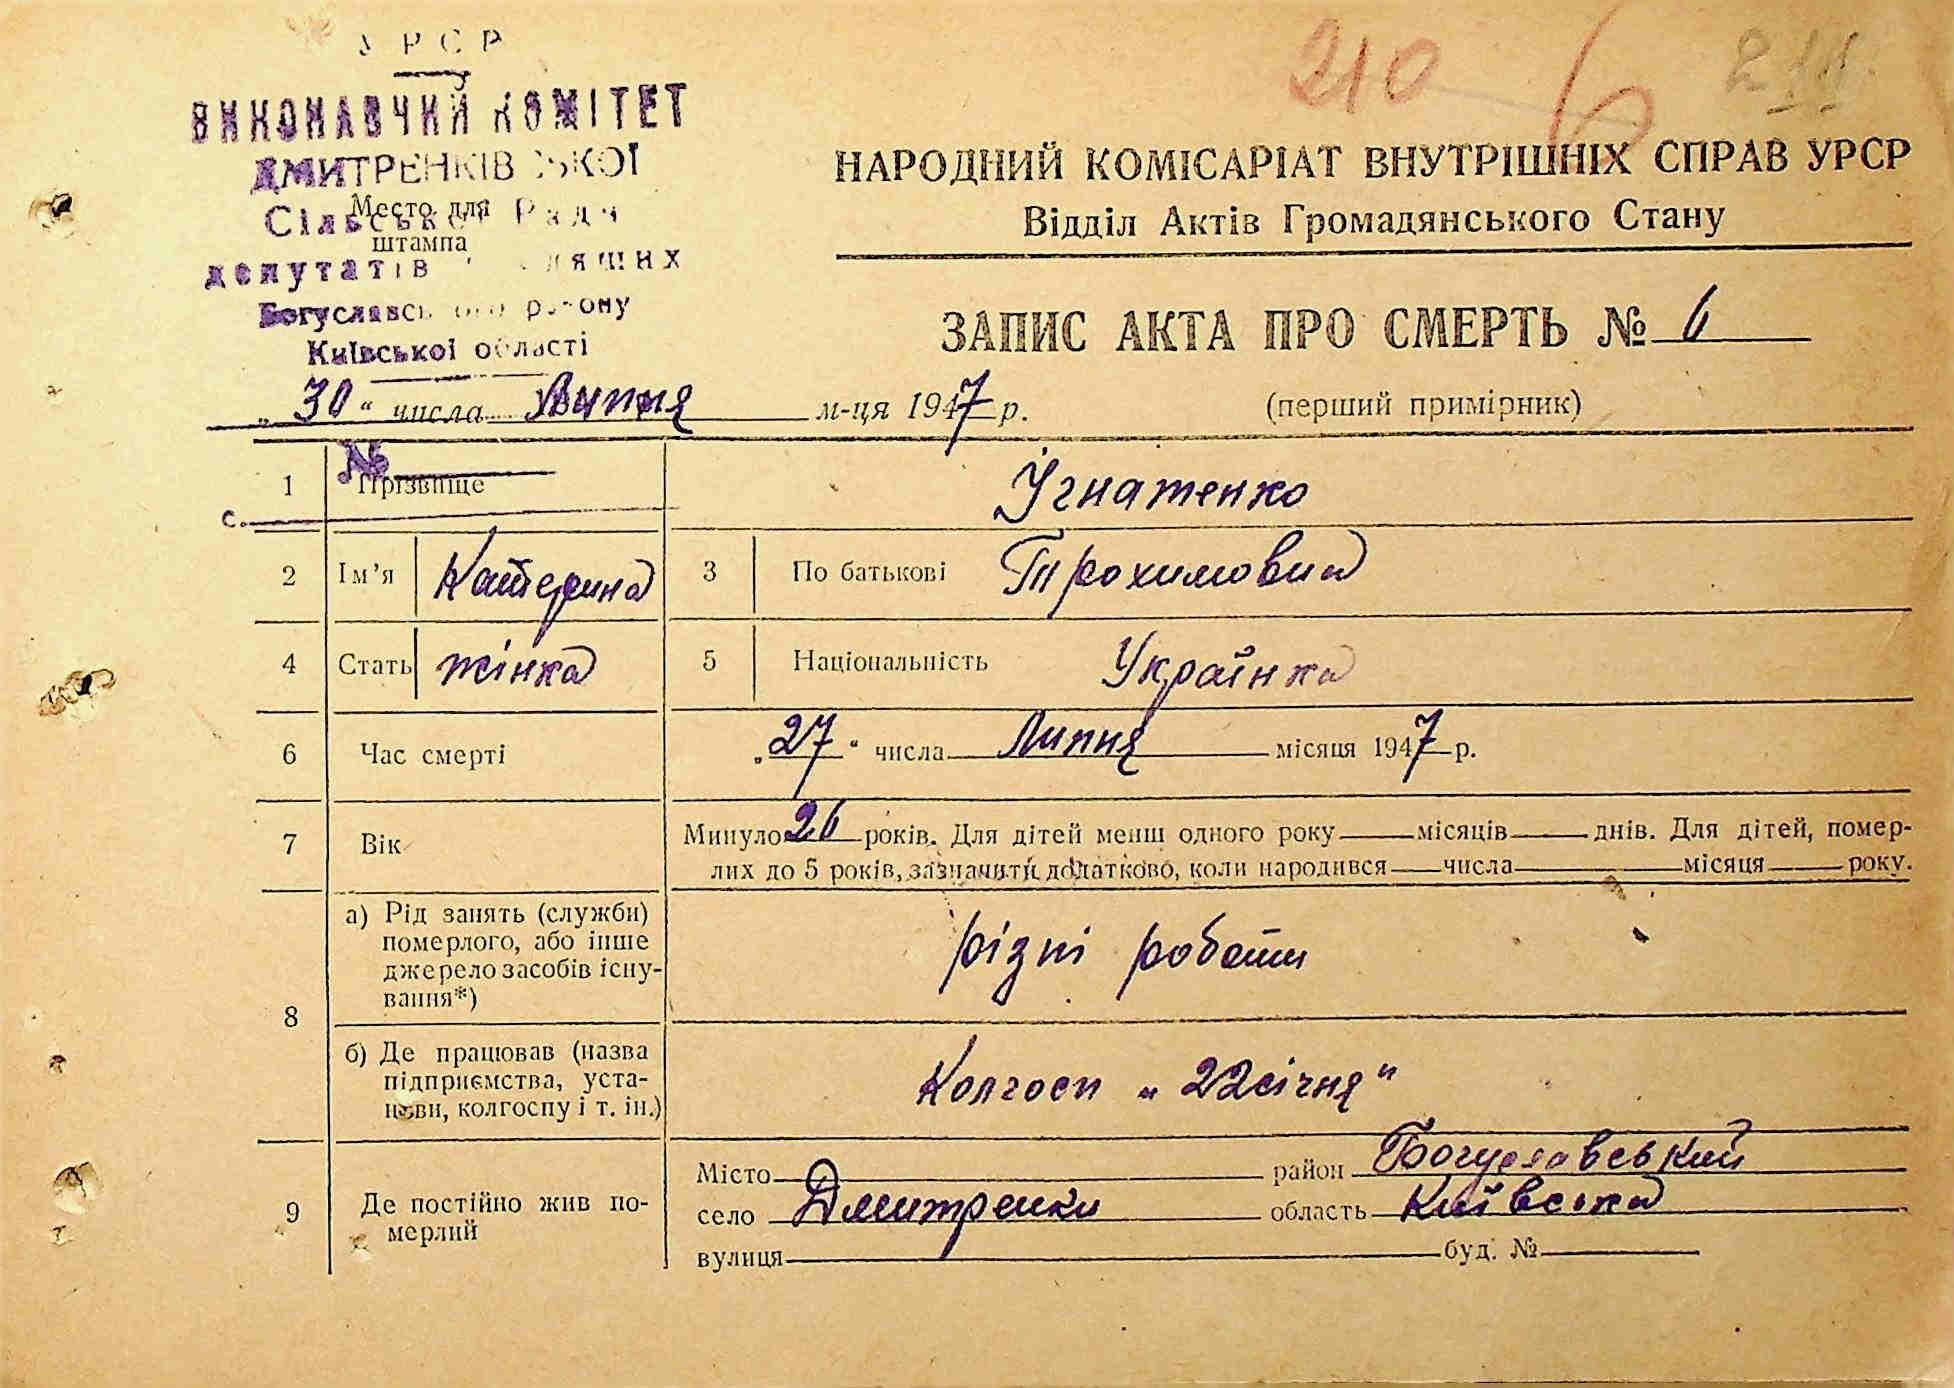 УРСР
ВИКОНАВЧИЙ КОМІТЕТ
ДМИТРЕНКІВСЬКОЇ
Сільської Ради
Место для
штампа
депутатів трудящих
Богуславського району
Київської області
210 6 211
НАРОДНИЙ КОМІСАРІАТ ВНУТРІШНІХ СПРАВ УРСР
Відділ Актів Громадянського Стану
ЗАПИС АКТА ПРО СМЕРТЬ № 6
„30“ числа Липня м-ця 1947 р. (перший примірник)
№
1 Прізвище Ігнатенко
с.
2 Ім'я Катерина 3 По батькові Трохимовна
4 Стать жінка 5 Національність Українка
6 Час смерті „27“ числа Липня місяця 1947 р.
7 Вік Минуло 26 років. Для дітей менш одного року місяців днів. Для дітей, помер-
лих до 5 років, зазначити додатково, коли народився числа місяця року.
8 а) Рід занять (служби)
померлого, або інше
джерело засобів існу-
вання*)
різні роботи
б) Де працював (назва
підприємства, уста-
нови, колгоспу і т. ін.)
Колгосп „22 січня"
9 Де постійно жив по-
мерлий
Місто район Богуславський
село Дмитренки область Київська
вулиця буд. №